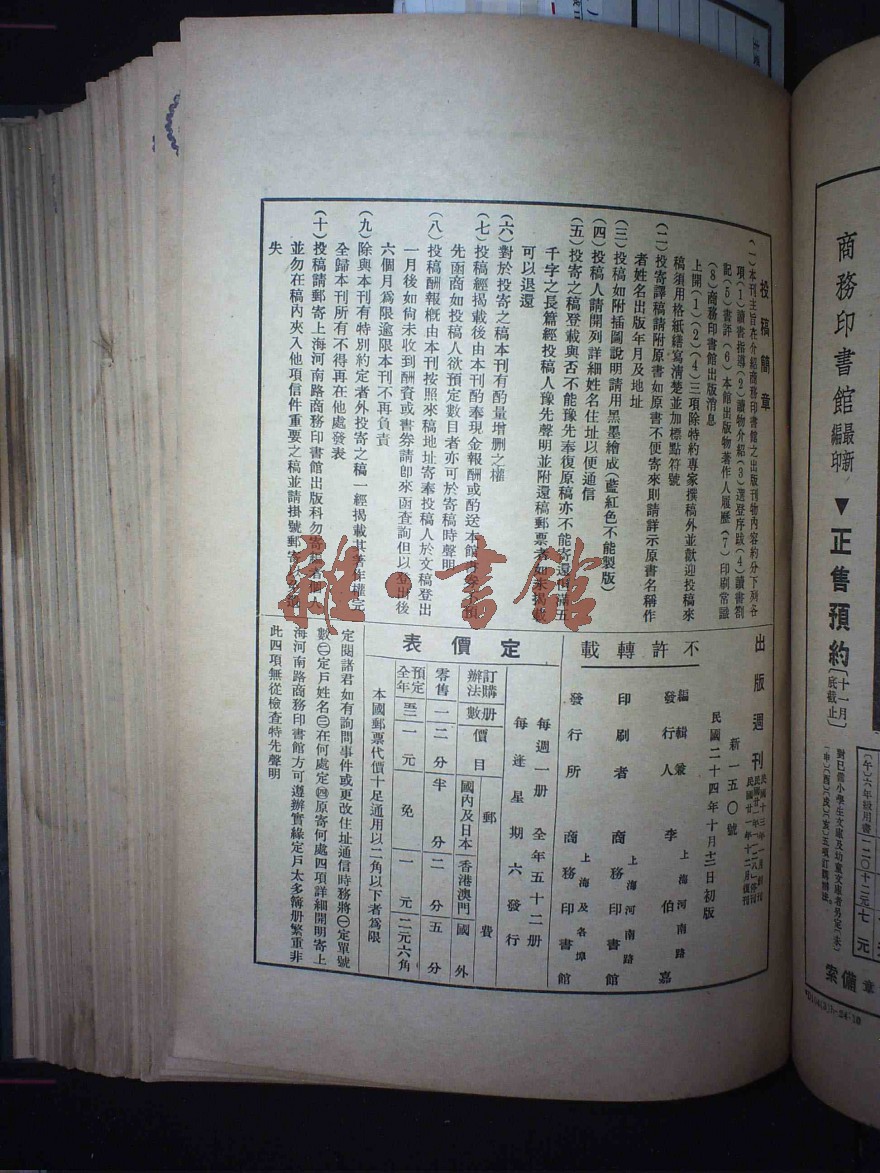 投稿簡章
(一)本刊主旨在介紹商務印書館之出版刊物內容約分下列各
項(1)讀書指導(2)讀物介紹(3)選登序跋(4)讀書劄
記(5)書評(6)本館出版物著作人履歷(7)印刷常識
(8)商務印書館出版消息
上開(1)(2)(4)三項除特約專家撰稿外並歡迎投稿來
稿須用格紙繕寫清楚並加標點符號
(二)投寄譯稿請附原書如原書不便寄來則請詳示原書名稱作
者姓名出版年月及地址
(三)投稿如附插圖說明請用黑墨繪成(藍紅色不能製版)
(四)投稿人請開列詳細姓名住址以便通信
(五)投寄之稿登載與否不能豫先奉復原稿亦不能寄還但滿五
千字之長篇經投稿人豫先聲明並附還稿郵票者如未揭載
可以退還
(六)對於投寄之稿本刊有酌量增删之權
(七)投稿經揭載後由本刊酌奉現金報酬或酌送本館
先函商如投稿人欲預定數目者亦可於寄稿時聲明
(八)投稿酬報概由本刊按照來稿地址寄奉投稿人於文稿登出
一月後如尙未收到酬資或書券請卽來函查詢但以登出後
六個月爲限逾限本刊不再負責
(九)除與本刊有特別約定者外投寄之稿一經揭載其著作權完
全歸本刊所有不得再在他處發表
(十)投稿請郵寄上海河南路商務印書館出版科勿寄編者個人
並勿在稿內夾入他項信件重要之稿並請掛號郵寄以免遺
失
出版週刊
新一五〇號
民國十三年一月創刊
民國廿一年一二八停刊
民國廿一年十二月復刊
民國二十四年十月十二日初版
不許轉載
編輯兼發行人 李伯嘉
上海河南路
印刷者 商務印書館
上海河南路
發行所 商務印書館
上海及各埠
定價表
每週一册 全年五十二册
每逢星期六發行
訂購辦法 册數 價目 郵費
國內及日本 香港澳門 國外
零售 一 二分 半分 二分 五分
預定全年 五二 一元 免 一元 二元六角
本國郵票代價十足通用以二角以下者爲限
定閱諸君如有詢問事件或更改住址通信時務將㊀定單號
數㊁定戶姓名㊂在何處定㊃原寄何處四項詳細開明寄上
海河南路商務印書館方可遵辦實緣定戶太多簿册繁重非
此四項無從檢查特先聲明
雅·書館
商務印書館最新編印
▼正售預約
(十一月底截止)
(午)六年級用書
一二〇
十二元
七元
對已備小學生文庫及幼童文庫者另定(未)
(申)(酉)(戌)(亥)五項訂購辦法
章備索